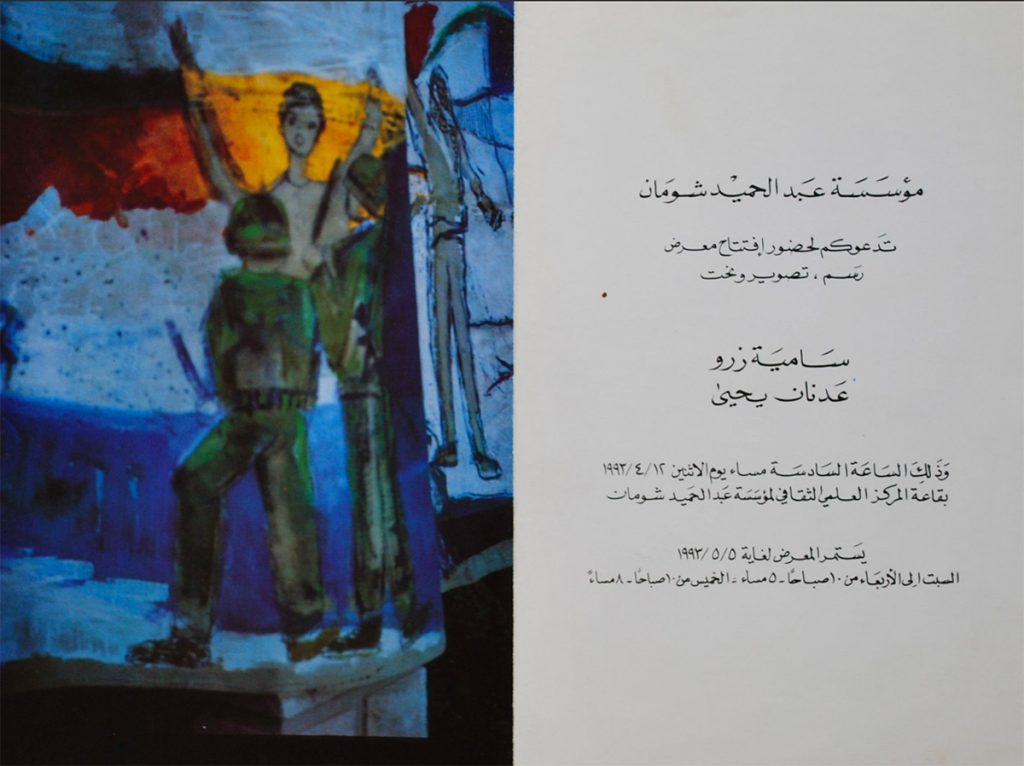 مؤسَسَة عبَد الحميْد شومَان
تَدعوكم لحضور إفتتاح معرض
رسَم ، تصوير ونحت
سَاميَة زرو
عَدنان يحيىٰ
وَذَلِكَ السَاعَة السَادسَة مساء يوم الاثنين ١٢ /٤ /١٩٩٣
بقاعة المركز العلمي الثقافي لمؤسَسَة عبَد الحميَد شومان
يسَتمر المعرض لغاية ٥ /٥ /١٩٩٣
السبت إلى الأربعَاء من ١٠ صباحًا - ٥ مساء - الخميس من ١٠ صباحًا - ٨ مساءً